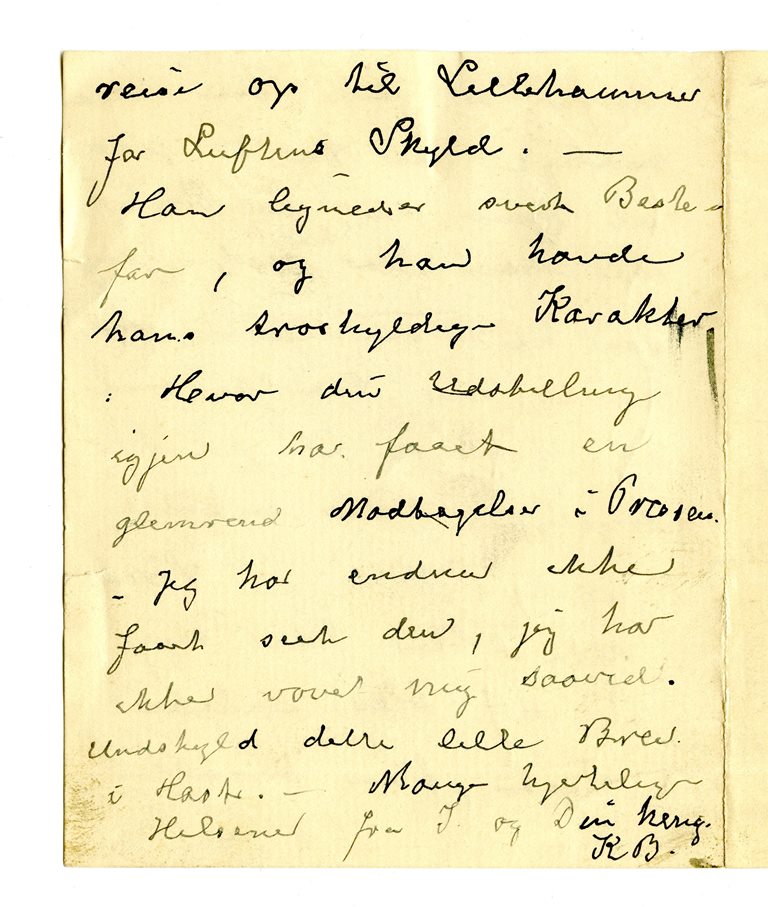 reise op til Lillehammer
for Luftens Skyld. —
Han lignede svært Beste-
far, og han havde
hans troskyldige Karakter
: Hvor din Udstilling
igjen har faaet en
glimrend Modtagelse i Pressen.
– Jeg har endnu ikke
faaet seet den, jeg har
ikke vovet mig saavid.
Undskyld dette lille Brev
i Hast. — Mange hjertelige
Hilsener fra I. og Din heng.
KB.